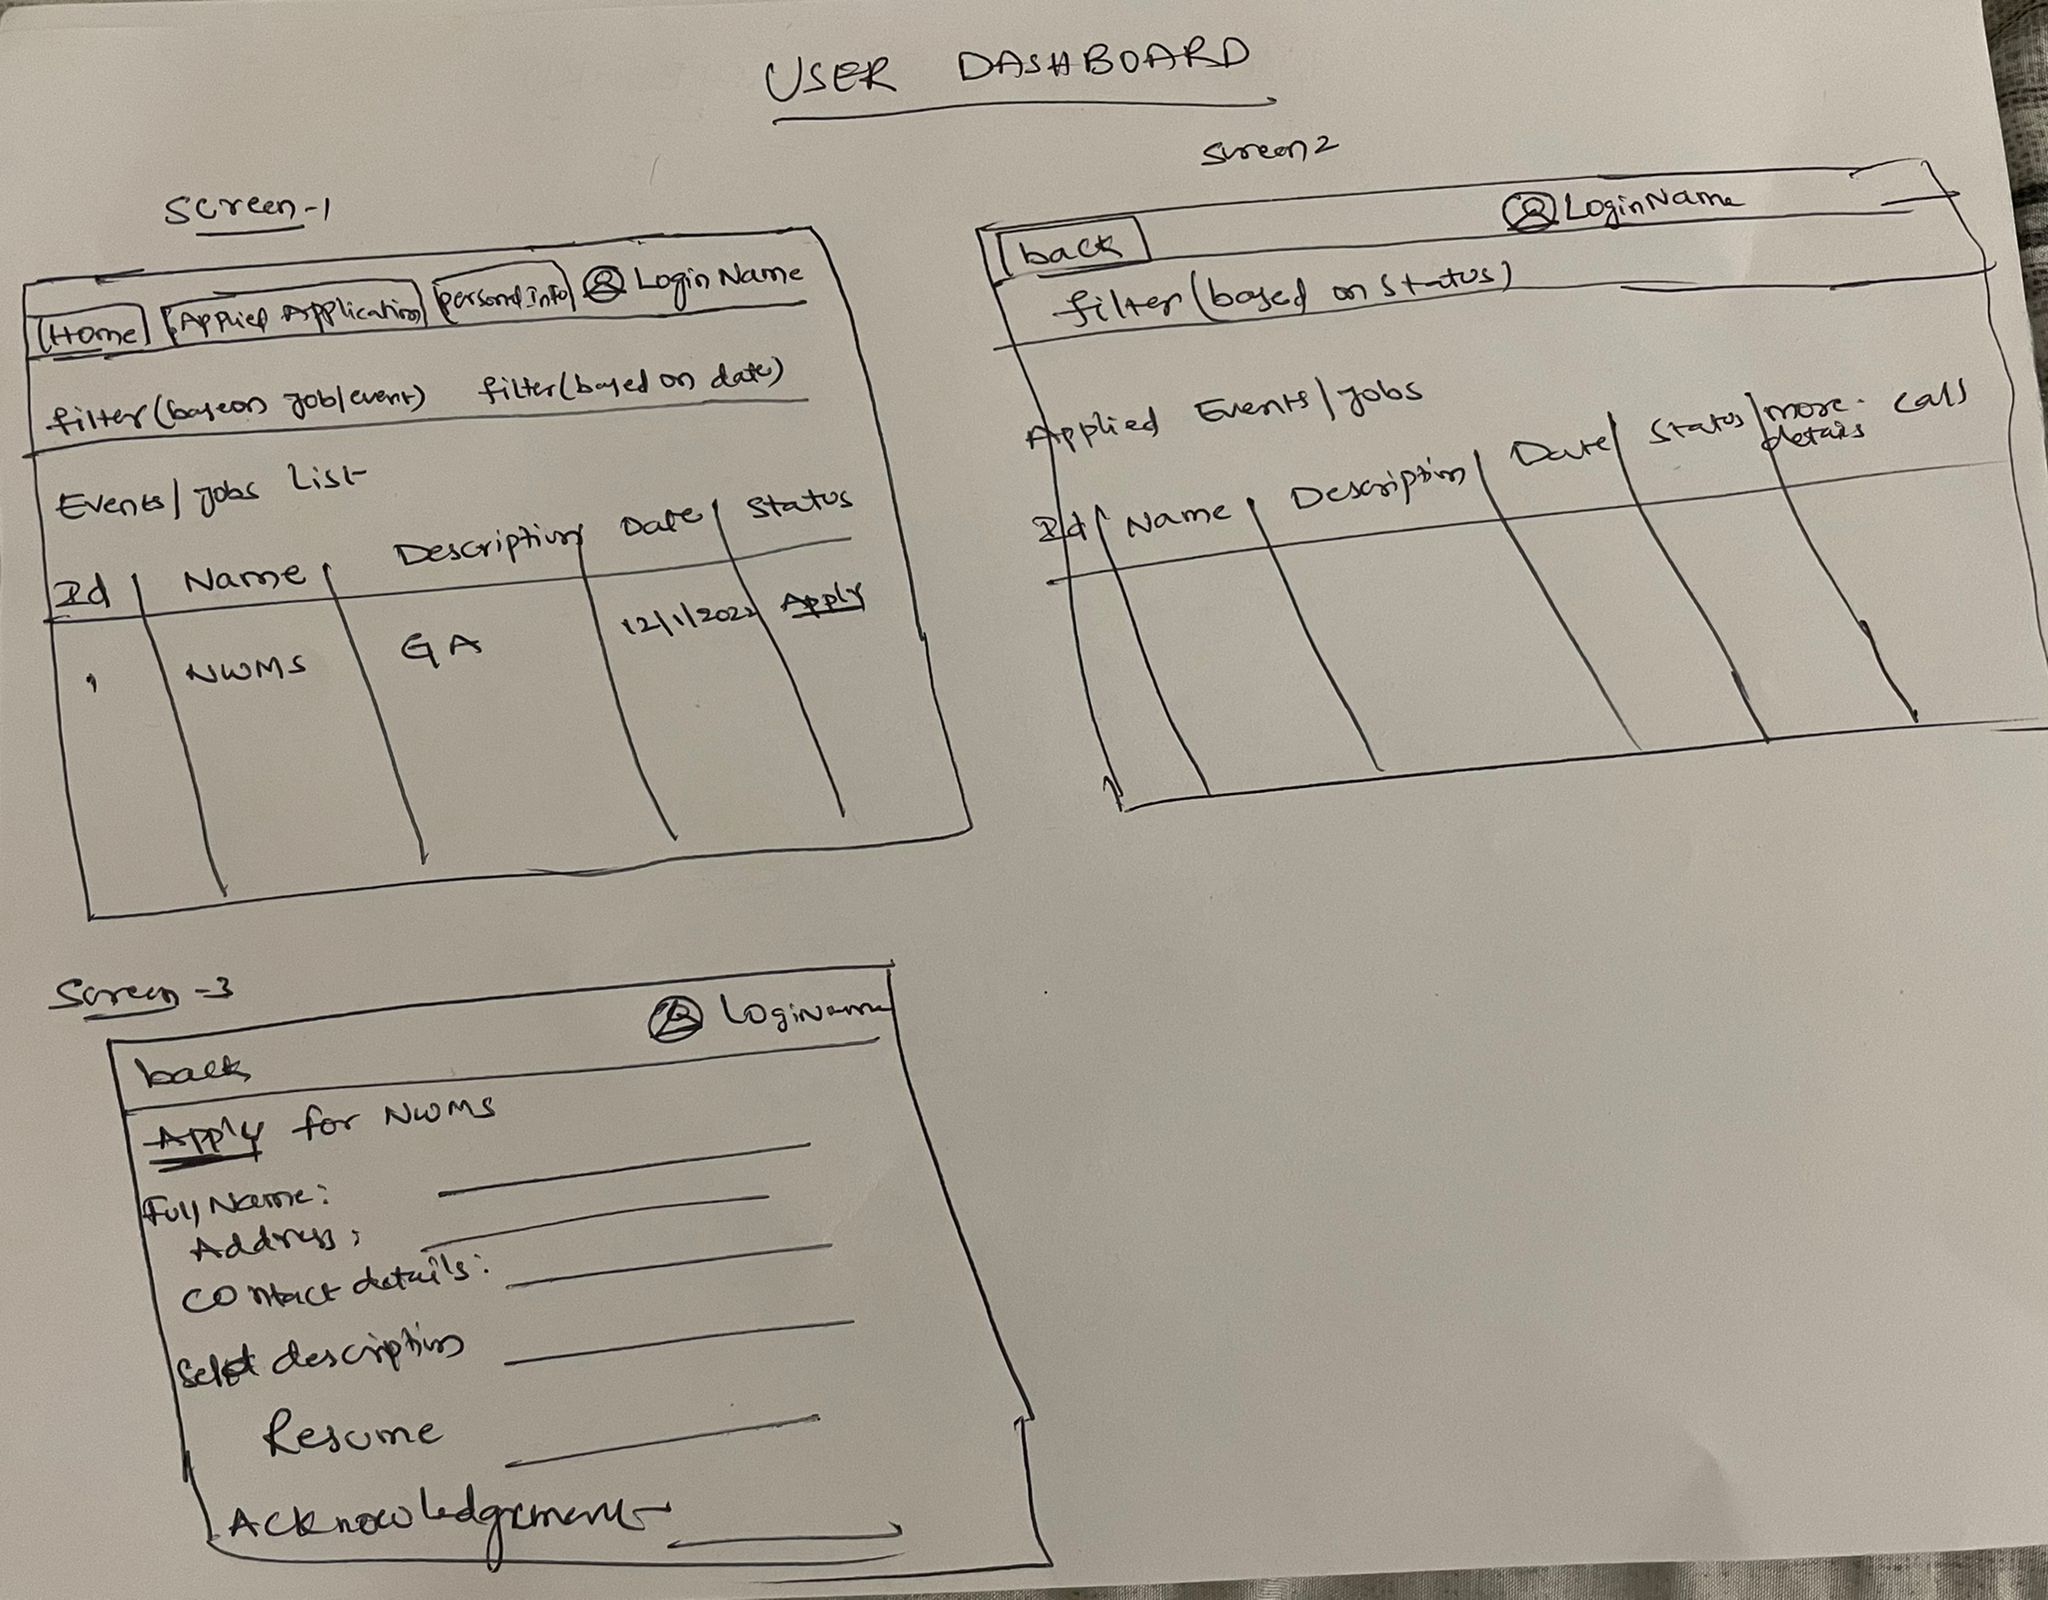 USER DASHBOARD
Screen-1
Home Applied Application personal Info Login Name
filter(baseon job/event) filter(based on date)
Events/jobs List
Id Name Description Date Status
1 NWMS GA 12/1/2022 Apply
Screen 2
back Login Name
filter(based on status)
Applied Events/jobs
Id Name Description Date Status more details call
Screen-3
back Loginname
Apply for NWMS
Full Name:
Address:
Contact details:
description
Resume
Acknowledgement